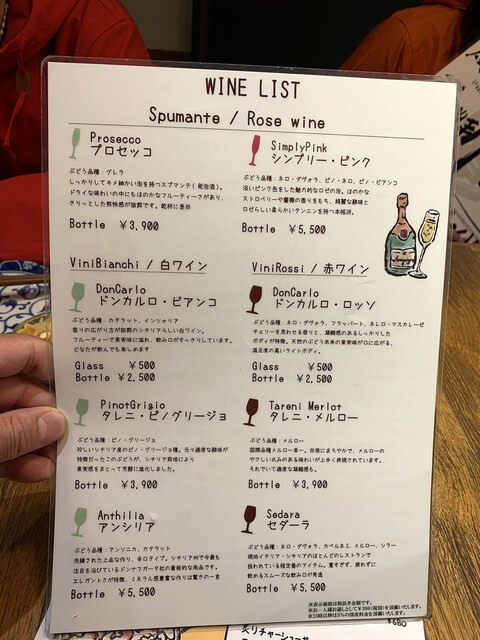 WINE LIST
Spumante / Rose wine
Prosecco
プロセッコ
ぶどう品種：グレラ
しっかりしてキメ細かい泡を持つスプマンテ(発泡酒)。
ドライな味わいの中にもほのかなフルーティーさがあり、
きりっとした爽快感が抜群です。乾杯に是非
Bottle ￥3,900
SimplyPink
シンプリー・ピンク
ぶどう品種：ネロ・ダヴォラ、ピノ・ネロ、ピノ・ビアンコ
淡いピンク色をした魅力的なロゼの泡。ほのかな
ストロベリーや薔薇の香りをもち、綺麗な酸味と
ロゼらしい柔らかいタンニンを持つ本格派。
Bottle ￥5,500
ViniBianchi / 白ワイン
DonCarlo
ドンカルロ・ビアンコ
ぶどう品種：カタラット、インツォリア
香りの広がり方が抜群のシチリアらしい白ワイン。
フルーティーで果実味に溢れ、飲み口がすっきりしています。
どなたが飲んでも楽しめます
Glass ￥500
Bottle ￥2,500
PinotGrigio
タレニ・ピノグリージョ
ぶどう品種：ピノ・グリージョ
珍しいシチリア産のピノ・グリージョ種。元々適度な酸味が
特徴だったこのぶどうが、シチリア栽培により
果実感をまとって芳醇に進化しました。
Bottle ￥3,900
Anthilia
アンシリア
ぶどう品種：アンソニカ、カタラット
洗練された上品な作り、辛口タイプ。シチリア州で今最も
注目を浴びているドンナフガータ社の看板的な商品です。
エレガントさが特徴、ミネラル感豊富な作りは驚きの一言
Bottle ￥5,500
ViniRossi / 赤ワイン
DonCarlo
ドンカルロ・ロッソ
ぶどう品種：ネロ・ダヴォラ、フラッパート、ネレロ・マスカレーゼ
チェリーを思わせる香りと、凝縮感のあるしっかりした
ボディが特徴。天然のぶどう本来の果実味が口に広がる、
満足度の高いライトボディ。
Glass ￥500
Bottle ￥2,500
Tareni Merlot
タレニ・メルロー
ぶどう品種：メルロー
国際品種メルロー単一。非常にまろやかで、メルローの
やさしい丸みのある味わいが上手く表現されています。
それでいて適度な凝縮感も。
Bottle ￥3,900
Sedara
セダーラ
ぶどう品種：ネロ・ダヴォラ、カベルネS、メルロー、シラー
現地イタリア・シチリアのほとんどのレストランで
扱われている程定番のアイテム。重すぎず、疲れずに
飲めるスムーズな飲み口が秀逸
Bottle ￥5,500
※表示価格は税抜き金額です。
※お一人様お通しとして￥380(税別)を頂戴いたします。
炙りチャーシュー
680